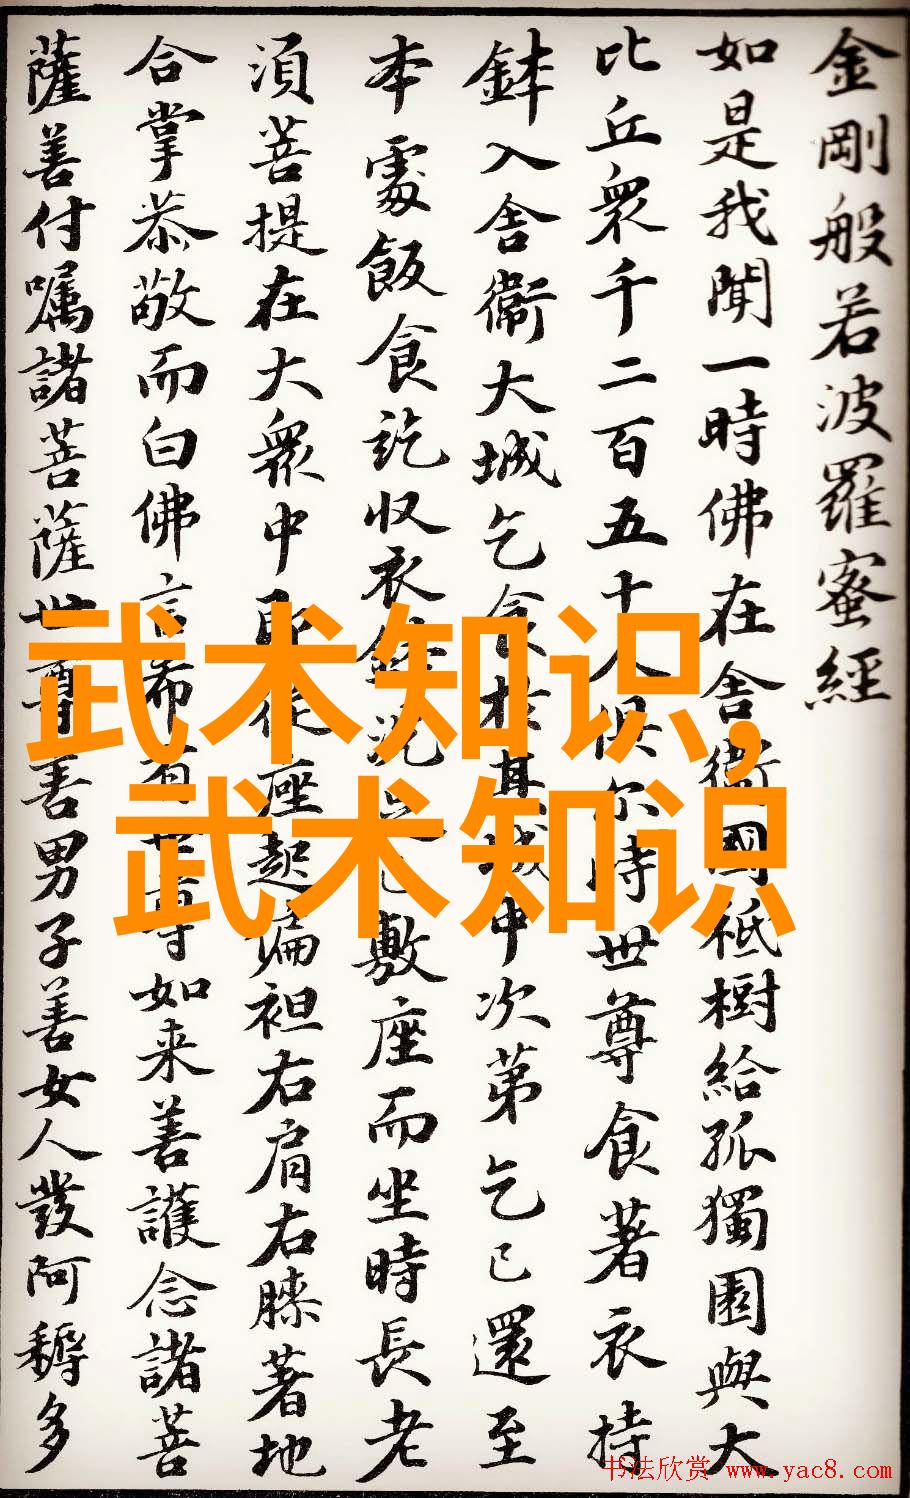 金剛般若波羅蜜經
如是我聞一時佛在舍衛國祇樹給孤獨園與大
比丘衆千二百五十人俱尔時世尊食著衣持
鉢入舍衛大城乞食於其城中次第乞已還至
本處飯食訖收衣鉢洗足已敷座而坐時長老
須菩提在大衆中即從座起偏袒右肩右膝著地
合掌恭敬而白佛言希有世尊如来善護念諸菩
薩善付囑諸菩薩世尊善男子善女人發阿耨多
武术知识,
武术知识
书法欣赏 www.yac8.com